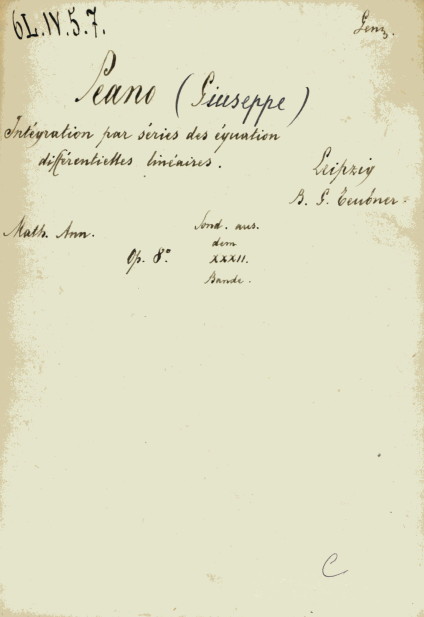 6L.IV.5.7.
Genz.
Peano (Giuseppe)
Intégration par séries des équation
différentielles linéaires.
Leipzig
B. G. Teubner
Math. Ann.
Sond. aus.
dem
Op. 8°.
XXXII.
Bande.
C